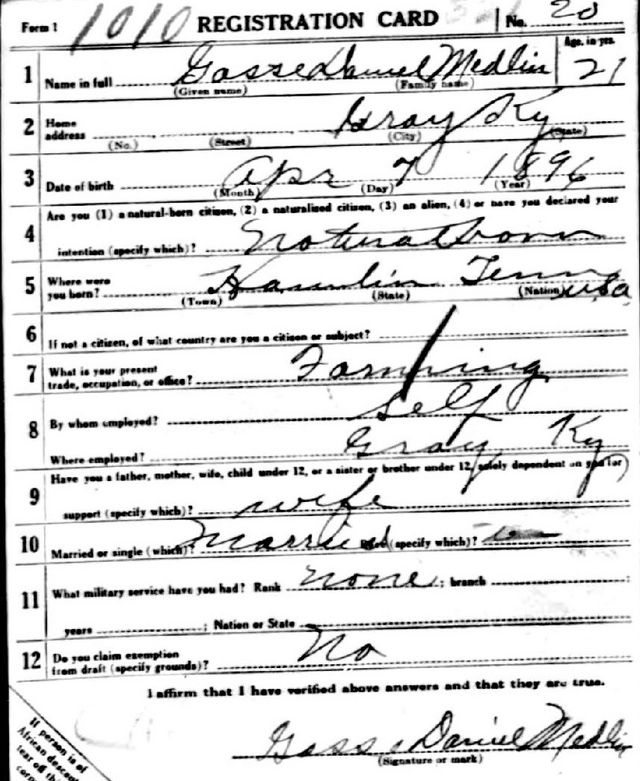 Form 1 1010 REGISTRATION CARD No. 20
1 Name in full Gasse Daniel Medlin Age, in yrs. 21
(Given name) (Family name)
2 Home address Gray Ky
(No.) (Street) (City) (State)
3 Date of birth Apr 7 1896
(Month) (Day) (Year)
Are you (1) a natural-born citizen, (2) a naturalized citizen, (3) an alien, (4) or have you declared your
4 intention (specify which)? Natural born
5 Where were you born? Hamlin Tenn USA
(Town) (State) (Nation)
6 If not a citizen, of what country are you a citizen or subject?
7 What is your present trade, occupation, or office? Farming
8 By whom employed? Self
Where employed? Gray Ky
Have you a father, mother, wife, child under 12, or a sister or brother under 12, solely dependent on you for
9 support (specify which)? wife
10 Married or single (which)? Married Race (specify which)?
11 What military service have you had? Rank none ; branch ;
years ; Nation or State
12 Do you claim exemption from draft (specify grounds)? No
I affirm that I have verified above answers and that they are true.
Gasse Daniel Medlin
(Signature or mark)
If person is of
African descent
tear off this